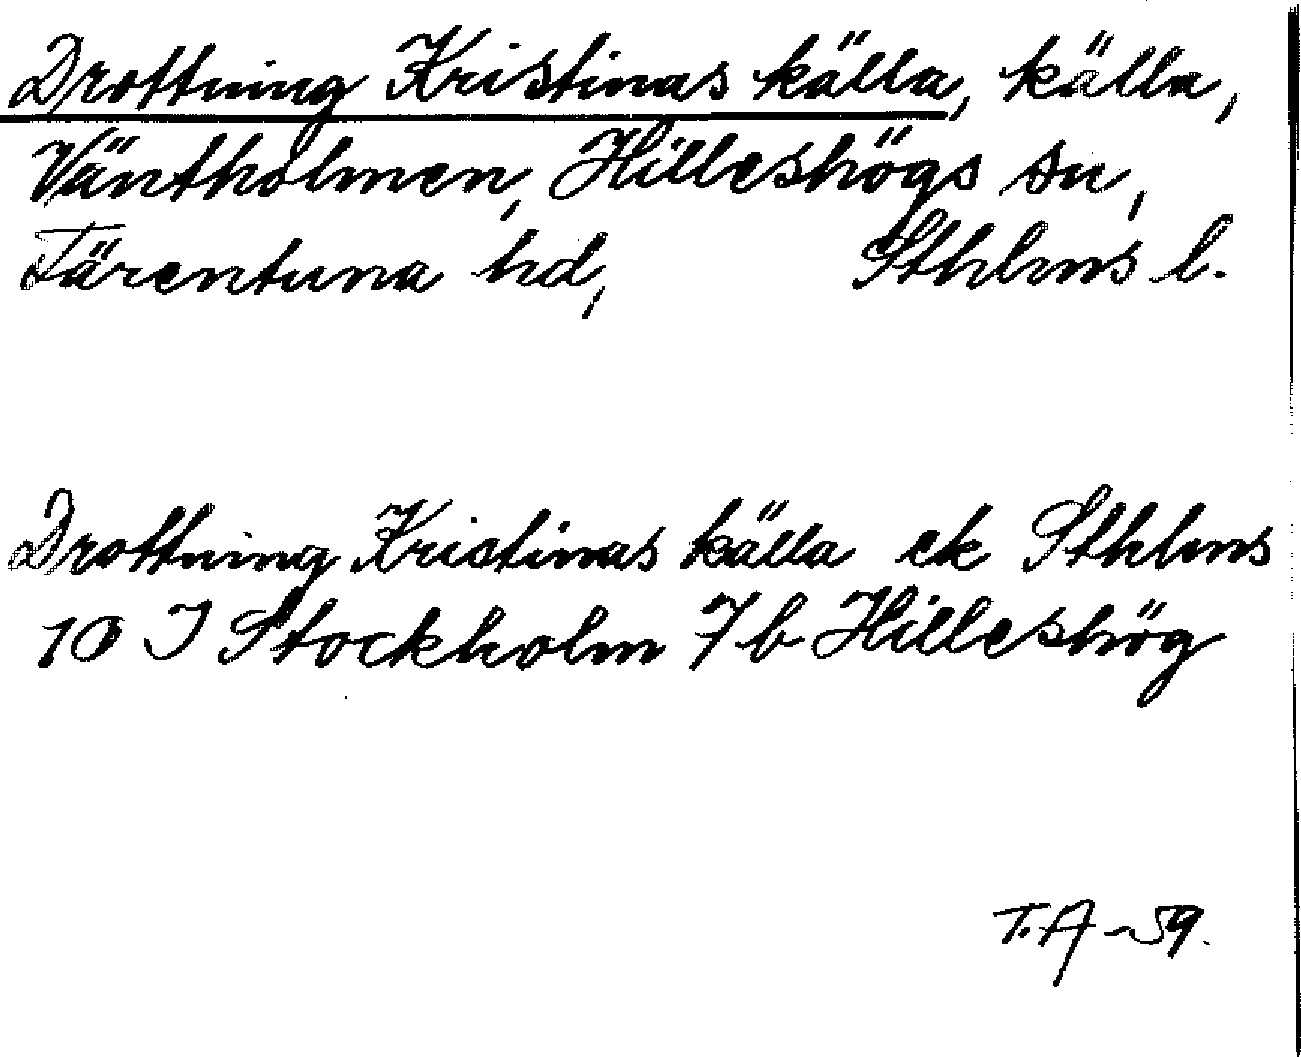 Drottning Kristinas källa, källa,
Väntholmen, Hilleshögs sn,
Färentuna hd, Sthlms l.
Drottning Kristinas källa ek Sthlms
10 I Stockholm 7b Hilleshög
T.A -59.